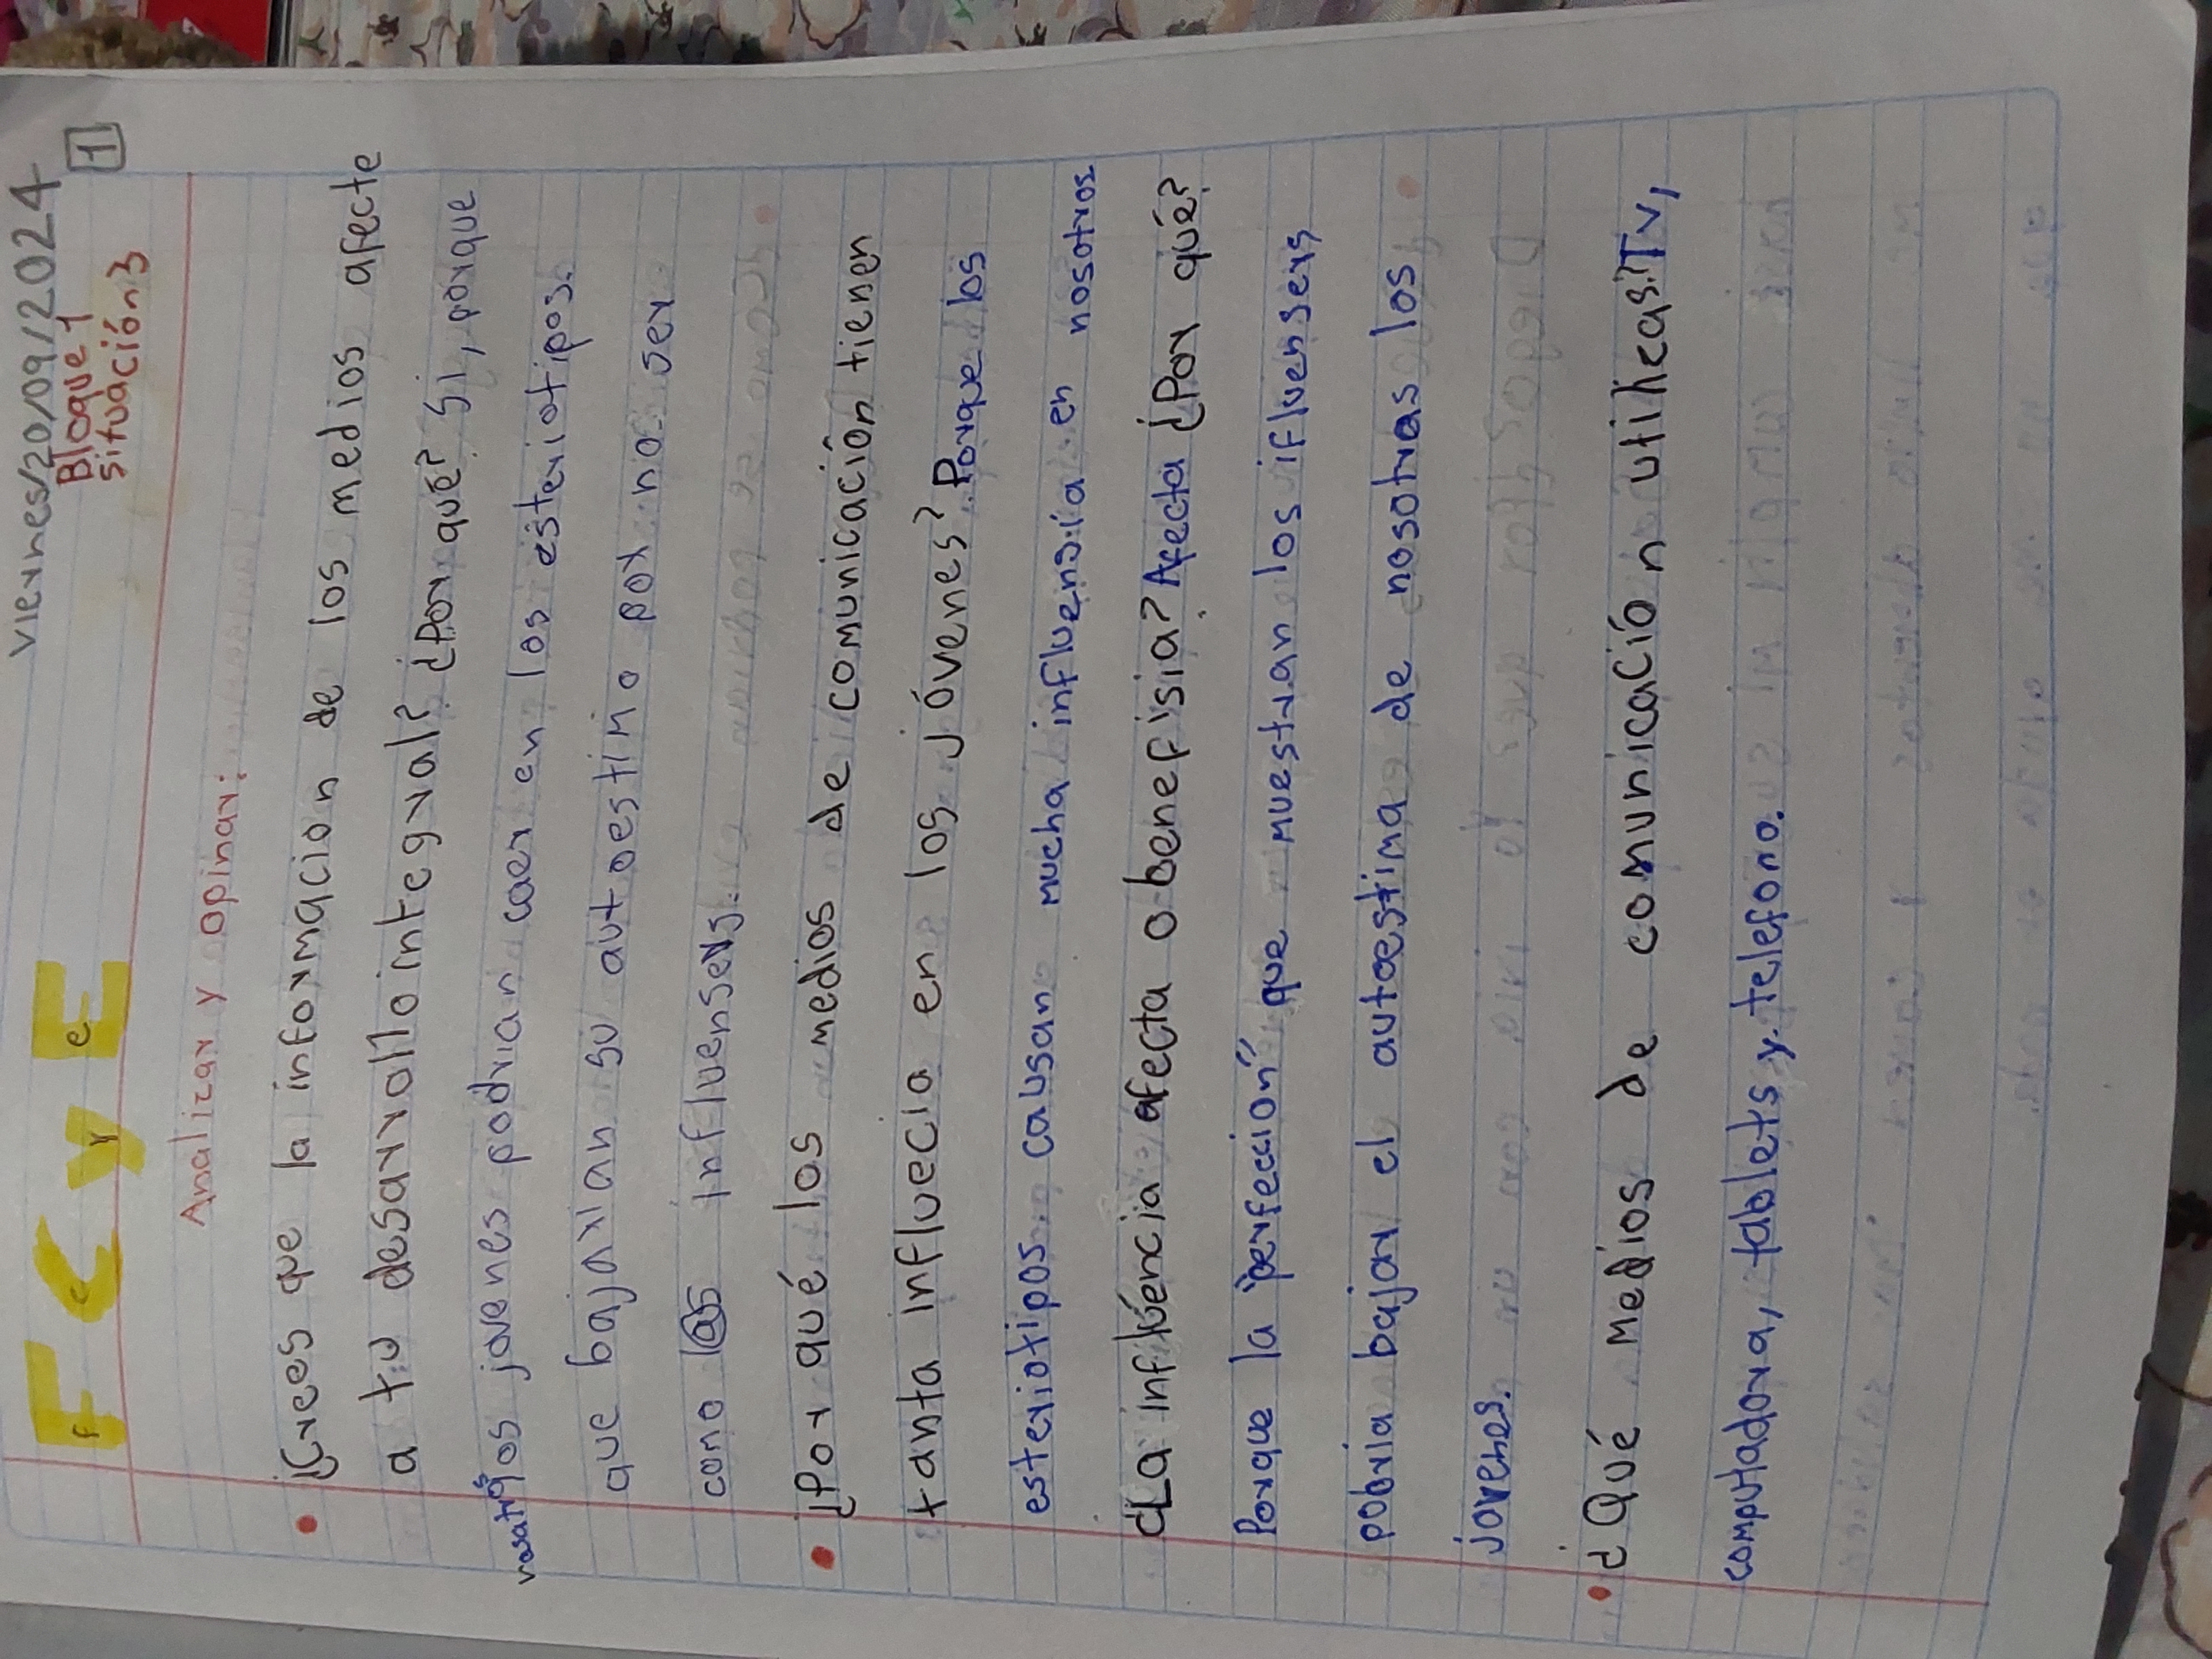 viernes/20/09/2024
F C y E
f c y e
Bloque 1
situación 3
1
Analizar y opinar:
¿Crees que la informacion de los medios afecte
a tu desarrollo integral? ¿Por qué? Si, porque
nosotros los jovenes podrian caer en los esteriotipos
que bajarian su autoestimo por no ser
como l@s influensers.
¿Por qué los medios de comunicación tienen
tanta influecia en los jóvenes? Porque los
esteriotipos causan mucha influensia en nosotros
¿La influéncia afecta o benefisia? Afecta ¿Por qué?
Porque la "perfección" que muestran los ifluensers
pobria bajar el autoestima de nosotras los
jovenes.
¿Qué medios de comunicación utilicas? Tv,
computadora, tablets y telefono.